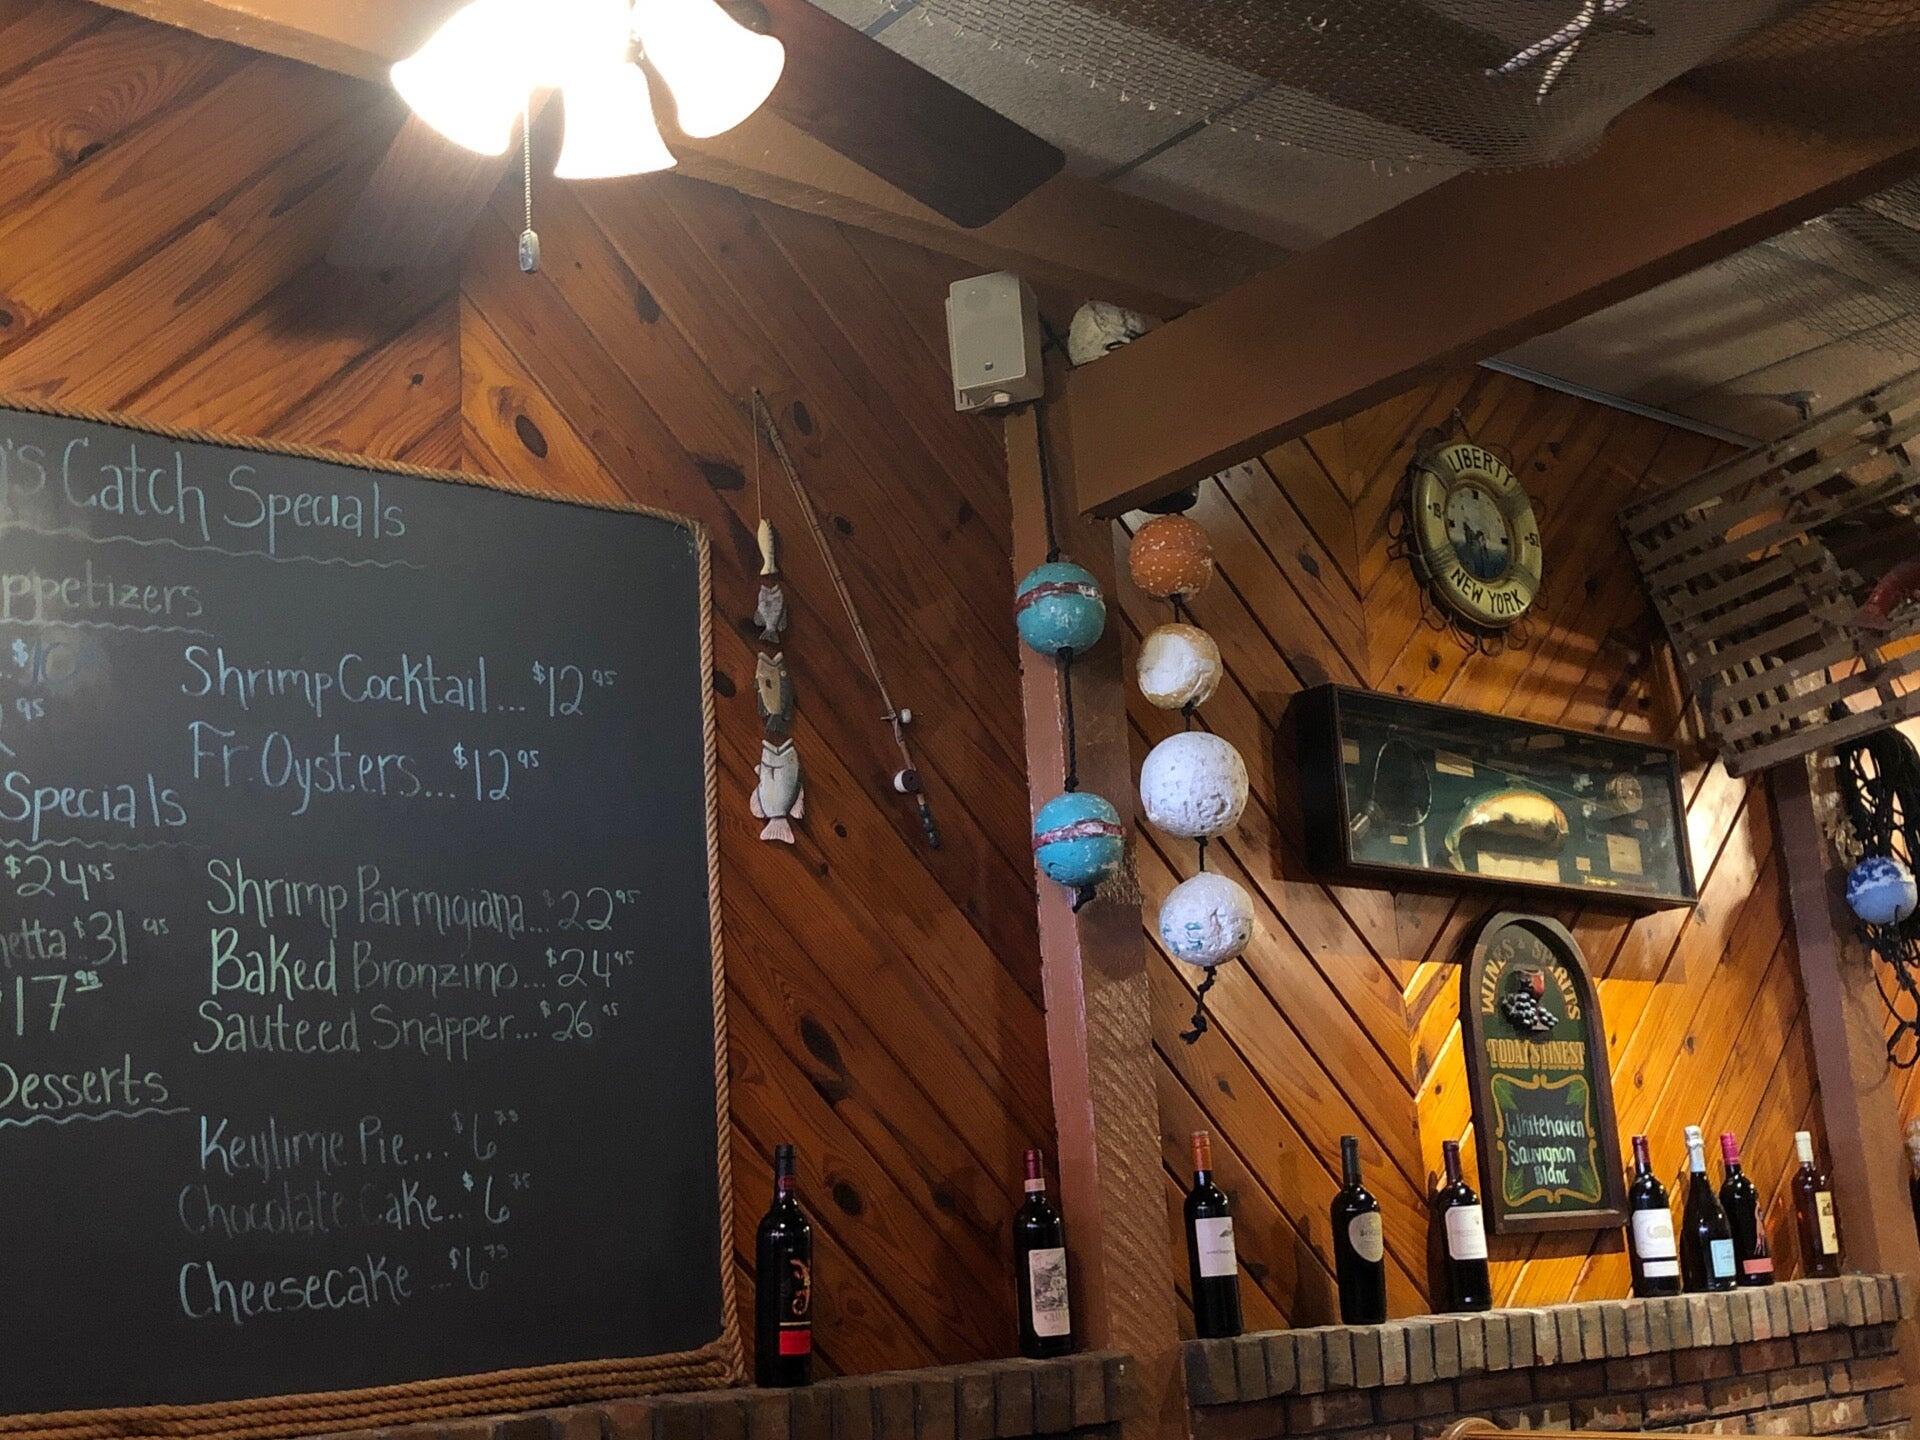 's Catch Specials
ppetizers
$10
95
Shrimp Cocktail... $12 95
Fr. Oysters... $12 95
Specials
$24 95
netta $31 95
$17 95
Shrimp Parmigiana... $22 95
Baked Bronzino... $24 95
Sauteed Snapper... $26 95
Desserts
Keylime Pie... $6 75
Chocolate Cake... $6 75
Cheesecake ... $6 75
LIBERTY
19 53
NEW YORK
WINES & SPIRITS
TODAY'S FINEST
Whitehaven
Sauvignon
Blanc